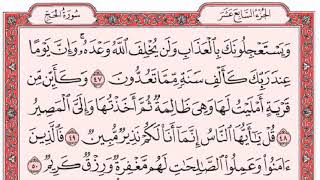 سُورَةُ الحَجِّ
الجُزْءُ السَّابِعَ عَشَرَ
وَيَسْتَعْجِلُونَكَ بِالْعَذَابِ وَلَن يُخْلِفَ اللَّهُ وَعْدَهُۥ وَإِنَّ يَوْمًا
عِندَ رَبِّكَ كَأَلْفِ سَنَةٍ مِّمَّا تَعُدُّونَ ٤٧ وَكَأَيِّن مِّن
قَرْيَةٍ أَمْلَيْتُ لَهَا وَهِىَ ظَالِمَةٌ ثُمَّ أَخَذْتُهَا وَإِلَىَّ الْمَصِيرُ
٤٨ قُلْ يَٰٓأَيُّهَا النَّاسُ إِنَّمَآ أَنَا۠ لَكُمْ نَذِيرٌ مُّبِينٌ ٤٩ فَالَّذِينَ
ءَامَنُوا۟ وَعَمِلُوا۟ الصَّٰلِحَٰتِ لَهُم مَّغْفِرَةٌ وَرِزْقٌ كَرِيمٌ ٥٠